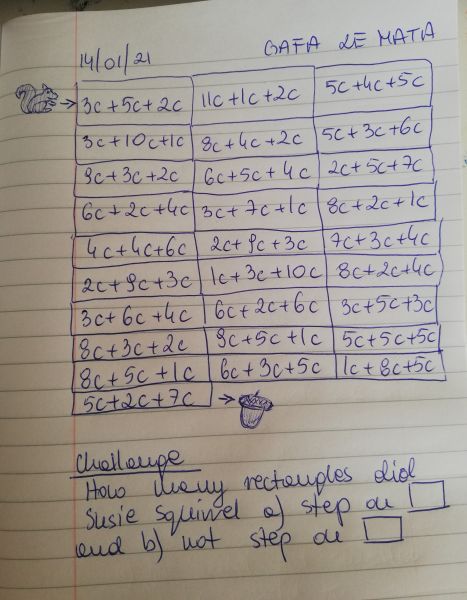 14/01/21 GAFA LE MATA
3c+5c+2c 11c+1c+2c 5c+4c+5c
3c+10c+1c 8c+4c+2c 5c+3c+6c
9c+3c+2c 6c+5c+4c 2c+5c+7c
6c+2c+4c 3c+7c+1c 8c+2c+1c
4c+4c+6c 2c+9c+3c 7c+3c+4c
2c+9c+3c 1c+3c+10c 8c+2c+4c
3c+6c+4c 6c+2c+6c 3c+5c+3c
8c+3c+2c 9c+5c+1c 5c+5c+5c
8c+5c+1c 6c+3c+5c 1c+8c+5c
5c+2c+7c
Challenge
How many rectangles did
Susie Squirrel a) step on
and b) not step on